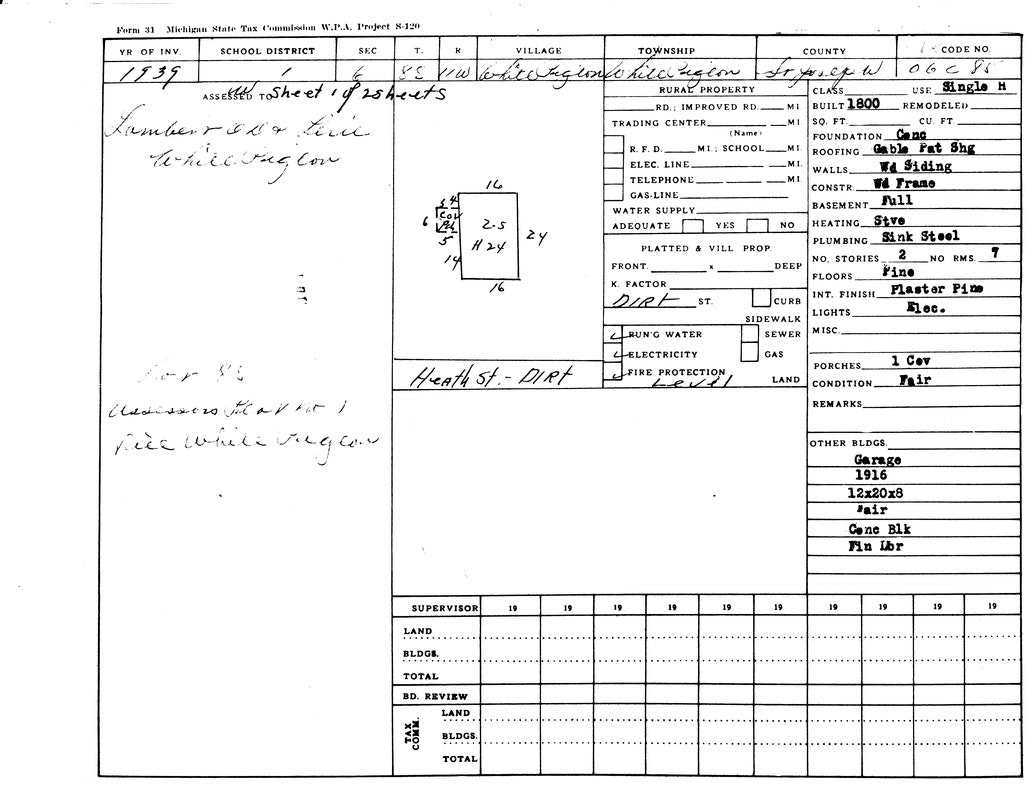 Form 31 Michigan State Tax Commission W.P.A. Project S-120
YR OF INV. SCHOOL DISTRICT SEC T. R VILLAGE TOWNSHIP COUNTY CODE NO.
1939 1 6 8S 11W White Pigeon White Pigeon St. Joseph 06C 85
ASSESSED TO Sheet 1 of 2 sheets
Lambert
White Pigeon
16
6 Cov
5
14
2-S
H 24
24
16
Lot 85
Assessors Plat No 1
White Pigeon
Heath St. - DIRT
RURAL PROPERTY
RD.; IMPROVED RD. MI.
TRADING CENTER MI.
(Name)
R. F. D. MI.; SCHOOL MI.
ELEC. LINE MI.
TELEPHONE MI.
GAS-LINE
WATER SUPPLY
ADEQUATE YES NO
PLATTED & VILL PROP.
FRONT. x DEEP
K. FACTOR
DIRT ST. CURB
SIDEWALK
RUN'G WATER SEWER
ELECTRICITY GAS
FIRE PROTECTION
Level LAND
CLASS USE Single H
BUILT 1800 REMODELED
SQ. FT. CU. FT.
FOUNDATION Conc
ROOFING Gable Pat Shg
WALLS Wd Siding
CONSTR. Wd Frame
BASEMENT Full
HEATING Stve
PLUMBING Sink Steel
NO. STORIES 2 NO RMS. 7
FLOORS Pine
INT. FINISH Plaster Pine
LIGHTS Elec.
MISC.
PORCHES 1 Cov
CONDITION Fair
REMARKS
OTHER BLDGS.
Garage
1916
12x20x8
Fair
Conc Blk
Fin Lbr
SUPERVISOR 19 19 19 19 19 19 19 19 19 19
LAND
BLDGS.
TOTAL
BD. REVIEW
TAX COMM.
LAND
BLDGS.
TOTAL